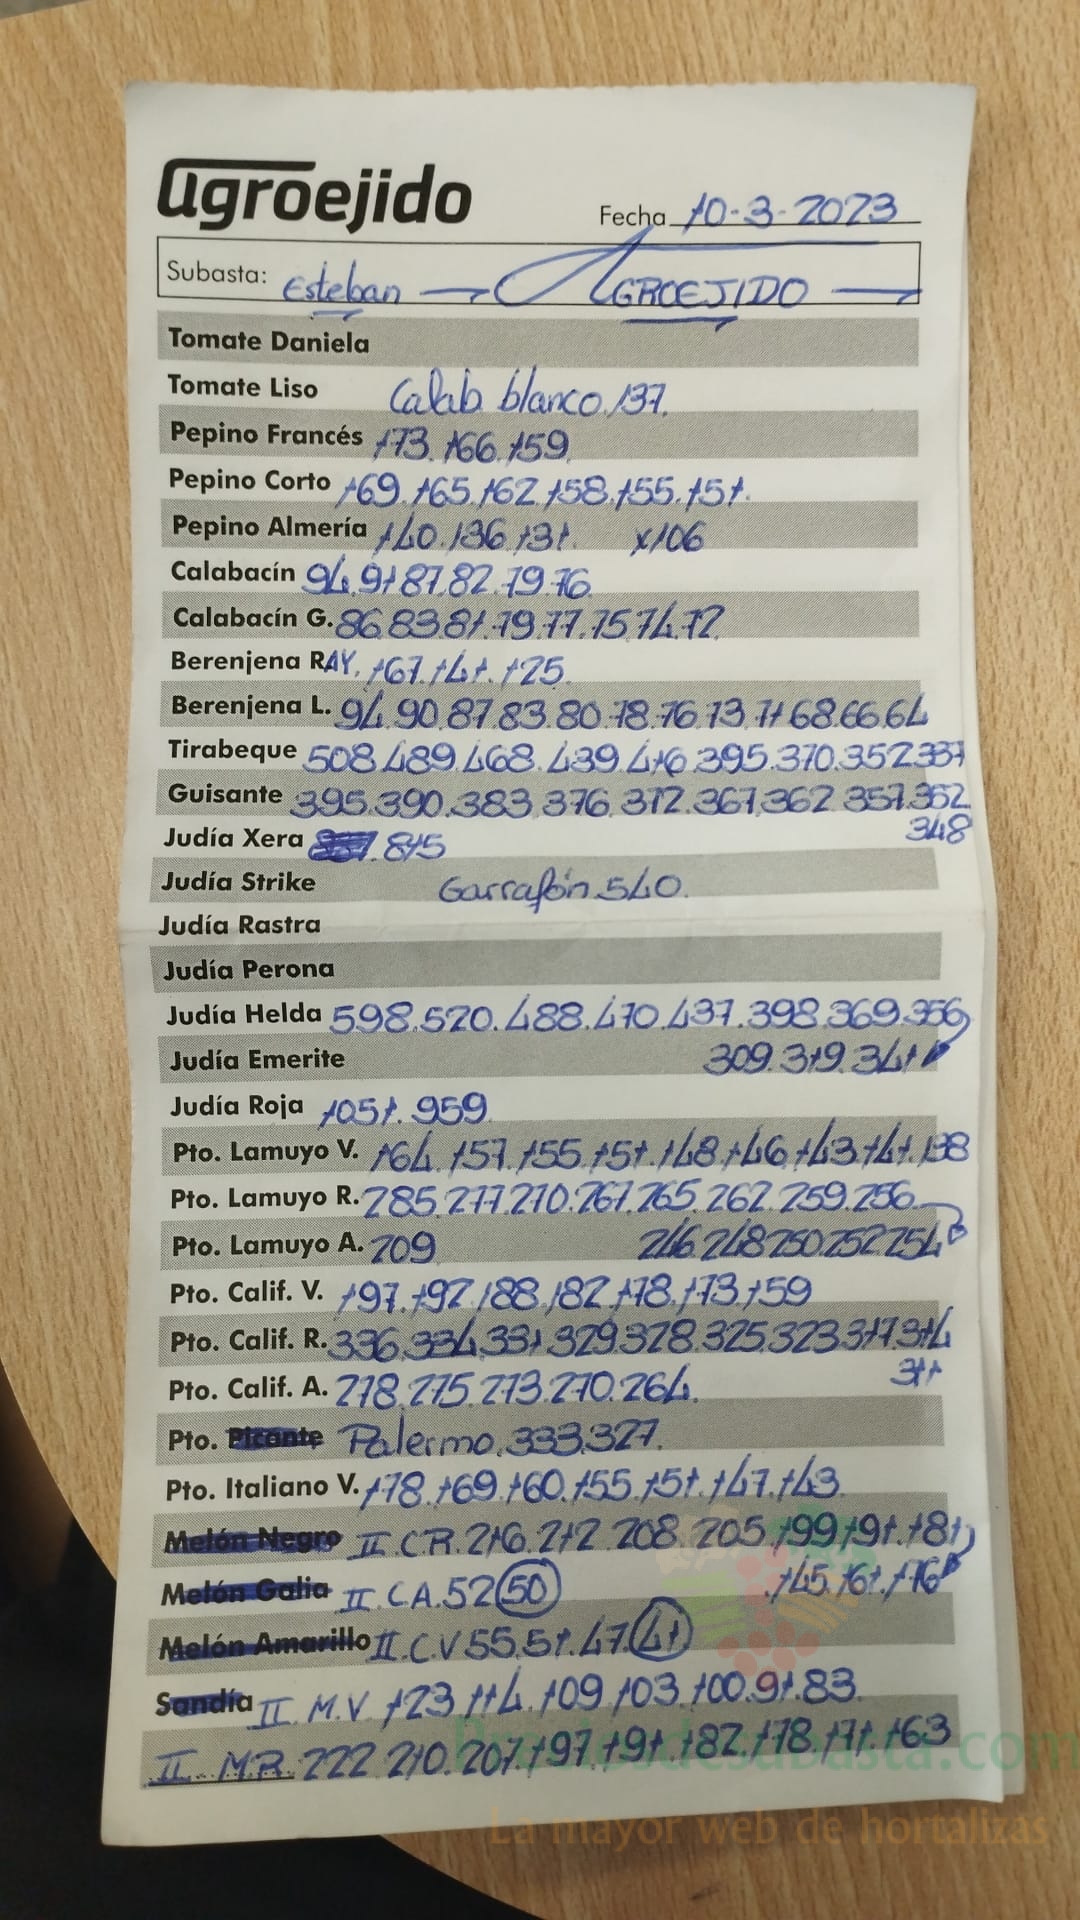 agroejido
Fecha 10-3-2023
Subasta: Esteban → AGROEJIDO →
Tomate Daniela
Tomate Liso Calab blanco.137.
Pepino Francés 173.166.159.
Pepino Corto 169.165.162.158.155.151.
Pepino Almería 140.136.131. x106
Calabacín 94.91.87.82.79.76.
Calabacín G. 86.83.81.79.77.75.74.72.
Berenjena RAY. 167.141.125.
Berenjena L. 94.90.87.83.80.78.76.73.71.68.66.64
Tirabeque 508.489.468.439.416.395.370.352.337
Guisante 395.390.383.376.372.367.362.357.352
348
Judía Xera 815
Judía Strike Garrafón 540.
Judía Rastra
Judía Perona
Judía Helda 598.520.488.470.437.398.369.356
Judía Emerite 309.319.341
Judía Roja 1051.959
Pto. Lamuyo V. 164.157.155.151.148.146.143.141.138
Pto. Lamuyo R. 285.277.270.267.265.262.259.256
Pto. Lamuyo A. 209 246.248.250.252.254
Pto. Calif. V. 197.192.188.182.178.173.159
Pto. Calif. R. 336.334.331.329.328.325.323.317.314
311
Pto. Calif. A. 278.275.273.270.264.
Pto. Picante Palermo.333.327.
Pto. Italiano V. 178.169.160.155.151.147.143.
Melón Negro II.CR.216.212.208.205.199.191.181
Melón Galia II.C.A.52 50 .145.161.176
Melón Amarillo II.C.V 55.51.47.41
Sandía II.M.V. 123.114.109.103.100.91.83.
II.MR.222.210.207.197.191.182.178.171.163
Preciosdesubasta.com
La mayor web de hortalizas